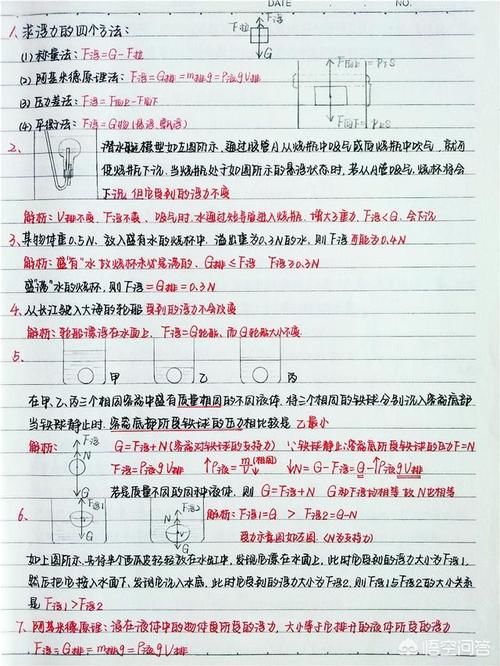 DATE NO.
1. 求浮力的四个方法：
F拉 F浮 G
(1) 称量法：F浮=G-F拉
(2) 阿基米德原理法：F浮=G排=m排g=ρ液gV排
(3) 压力差法：F浮=F向上-F向下
(4) 平衡法：F浮=G物(悬浮、漂浮)
2、 潜水艇模型如左图所示，通过胶管A从烧瓶中吸气或向烧瓶中吹气，就可
使烧瓶下沉、当烧瓶处于如图所示的悬浮状态时，若从A管吸气，烧瓶将会
下沉，但它受到的浮力不变
解析：V排不变、F浮不变、吸气时，水通过 进入烧瓶，增大了重力，F浮<G，会下沉
3、某物体重0.5N、放入盛有水的烧杯中、溢出重为0.3N的水，则F浮可能为0.4N
解析：盛"有"水 烧杯未必是满的、G排≤F浮 F浮≥0.3N
盛"满"水的烧杯，则F浮=G排=0.3N
4、从长江驶入大海的轮船 受到的浮力不会改变
解析：轮船漂浮在水面上、F浮=G轮船、而G轮船大小不变
5、 甲 乙 丙
在甲、乙、丙三个相同容器中盛有质量相同的不同液体，将三个相同的铁球分别沉入容器底部
当铁球静止时、容器底部受铁球的压力相比较是 乙最小
解析： F浮 G=F浮+N(容器对铁球的支持力) ∵铁球静止：容器底部受铁球的压力F=N
N F浮=ρ液gV排 ↑ρ液=m(相同)/V ↓N=G-F浮=G-↑ρ液gV排
G 若是质量不同的同种液体，则 G=F浮+N G和F浮均相等 故N也相等
6、 F浮1 G N F浮2 G 解析：F浮1=G > F浮2=G-N
受力示意图如左图、(N为支持力)
如上图所示、 轻轻放在水缸中，发现它漂在水面上，此时它受到的浮力大小为F浮1，
然后把它按入水面下、发现它沉入水底，此时它受到的浮力大小为F浮2，则F浮1与F浮2的大小关系
是 F浮1>F浮2
7、阿基米德原理：浸在液体中的物体受所受的浮力，大小等于它排开的液体所受的重力
F浮=G排=m排g=ρ液gV排
悟空问答